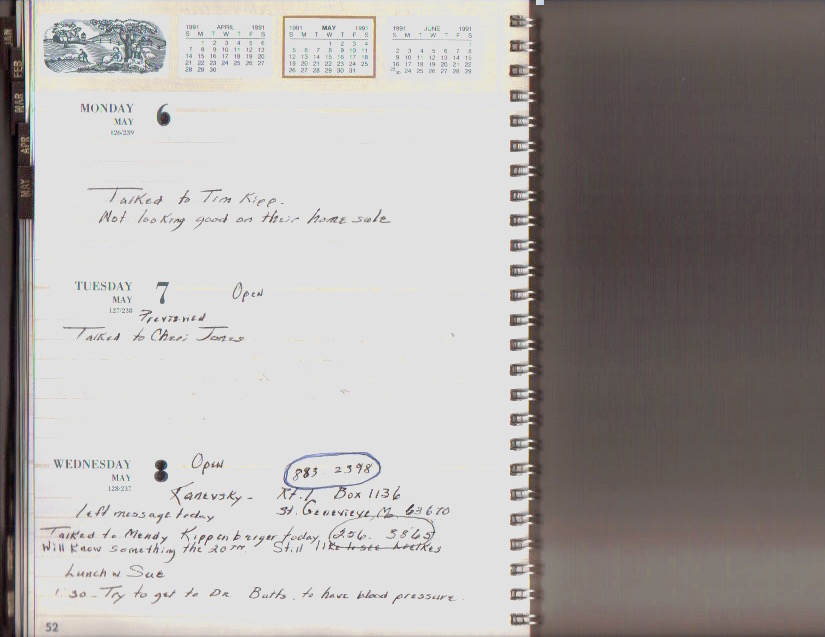 1991 APRIL 1991
S M T W T F S
1 2 3 4 5 6
7 8 9 10 11 12 13
14 15 16 17 18 19 20
21 22 23 24 25 26 27
28 29 30
1991 MAY 1991
S M T W T F S
1 2 3 4
5 6 7 8 9 10 11
12 13 14 15 16 17 18
19 20 21 22 23 24 25
26 27 28 29 30 31
1991 JUNE 1991
S M T W T F S
1
2 3 4 5 6 7 8
9 10 11 12 13 14 15
16 17 18 19 20 21 22
23/30 24 25 26 27 28 29
JAN
FEB
MAR
APR
MAY
MONDAY 6
MAY
126/239
Talked to Tim Kipp.
Not looking good on their home sale
TUESDAY 7 Open
MAY
127/238
Previewed
Talked to Cheri Jones
WEDNESDAY 8 Open
MAY
128/237
883 2398
Kanevsky - Rt. 1 Box 1136
left message today St. Genevieve, Mo 63670
Talked to Mendy Kippenberger today 256. 3865
Will Know something the 20TH. Still like
Lunch w Sue
1:30 - Try to get to Dr Butts. to have blood pressure.
52